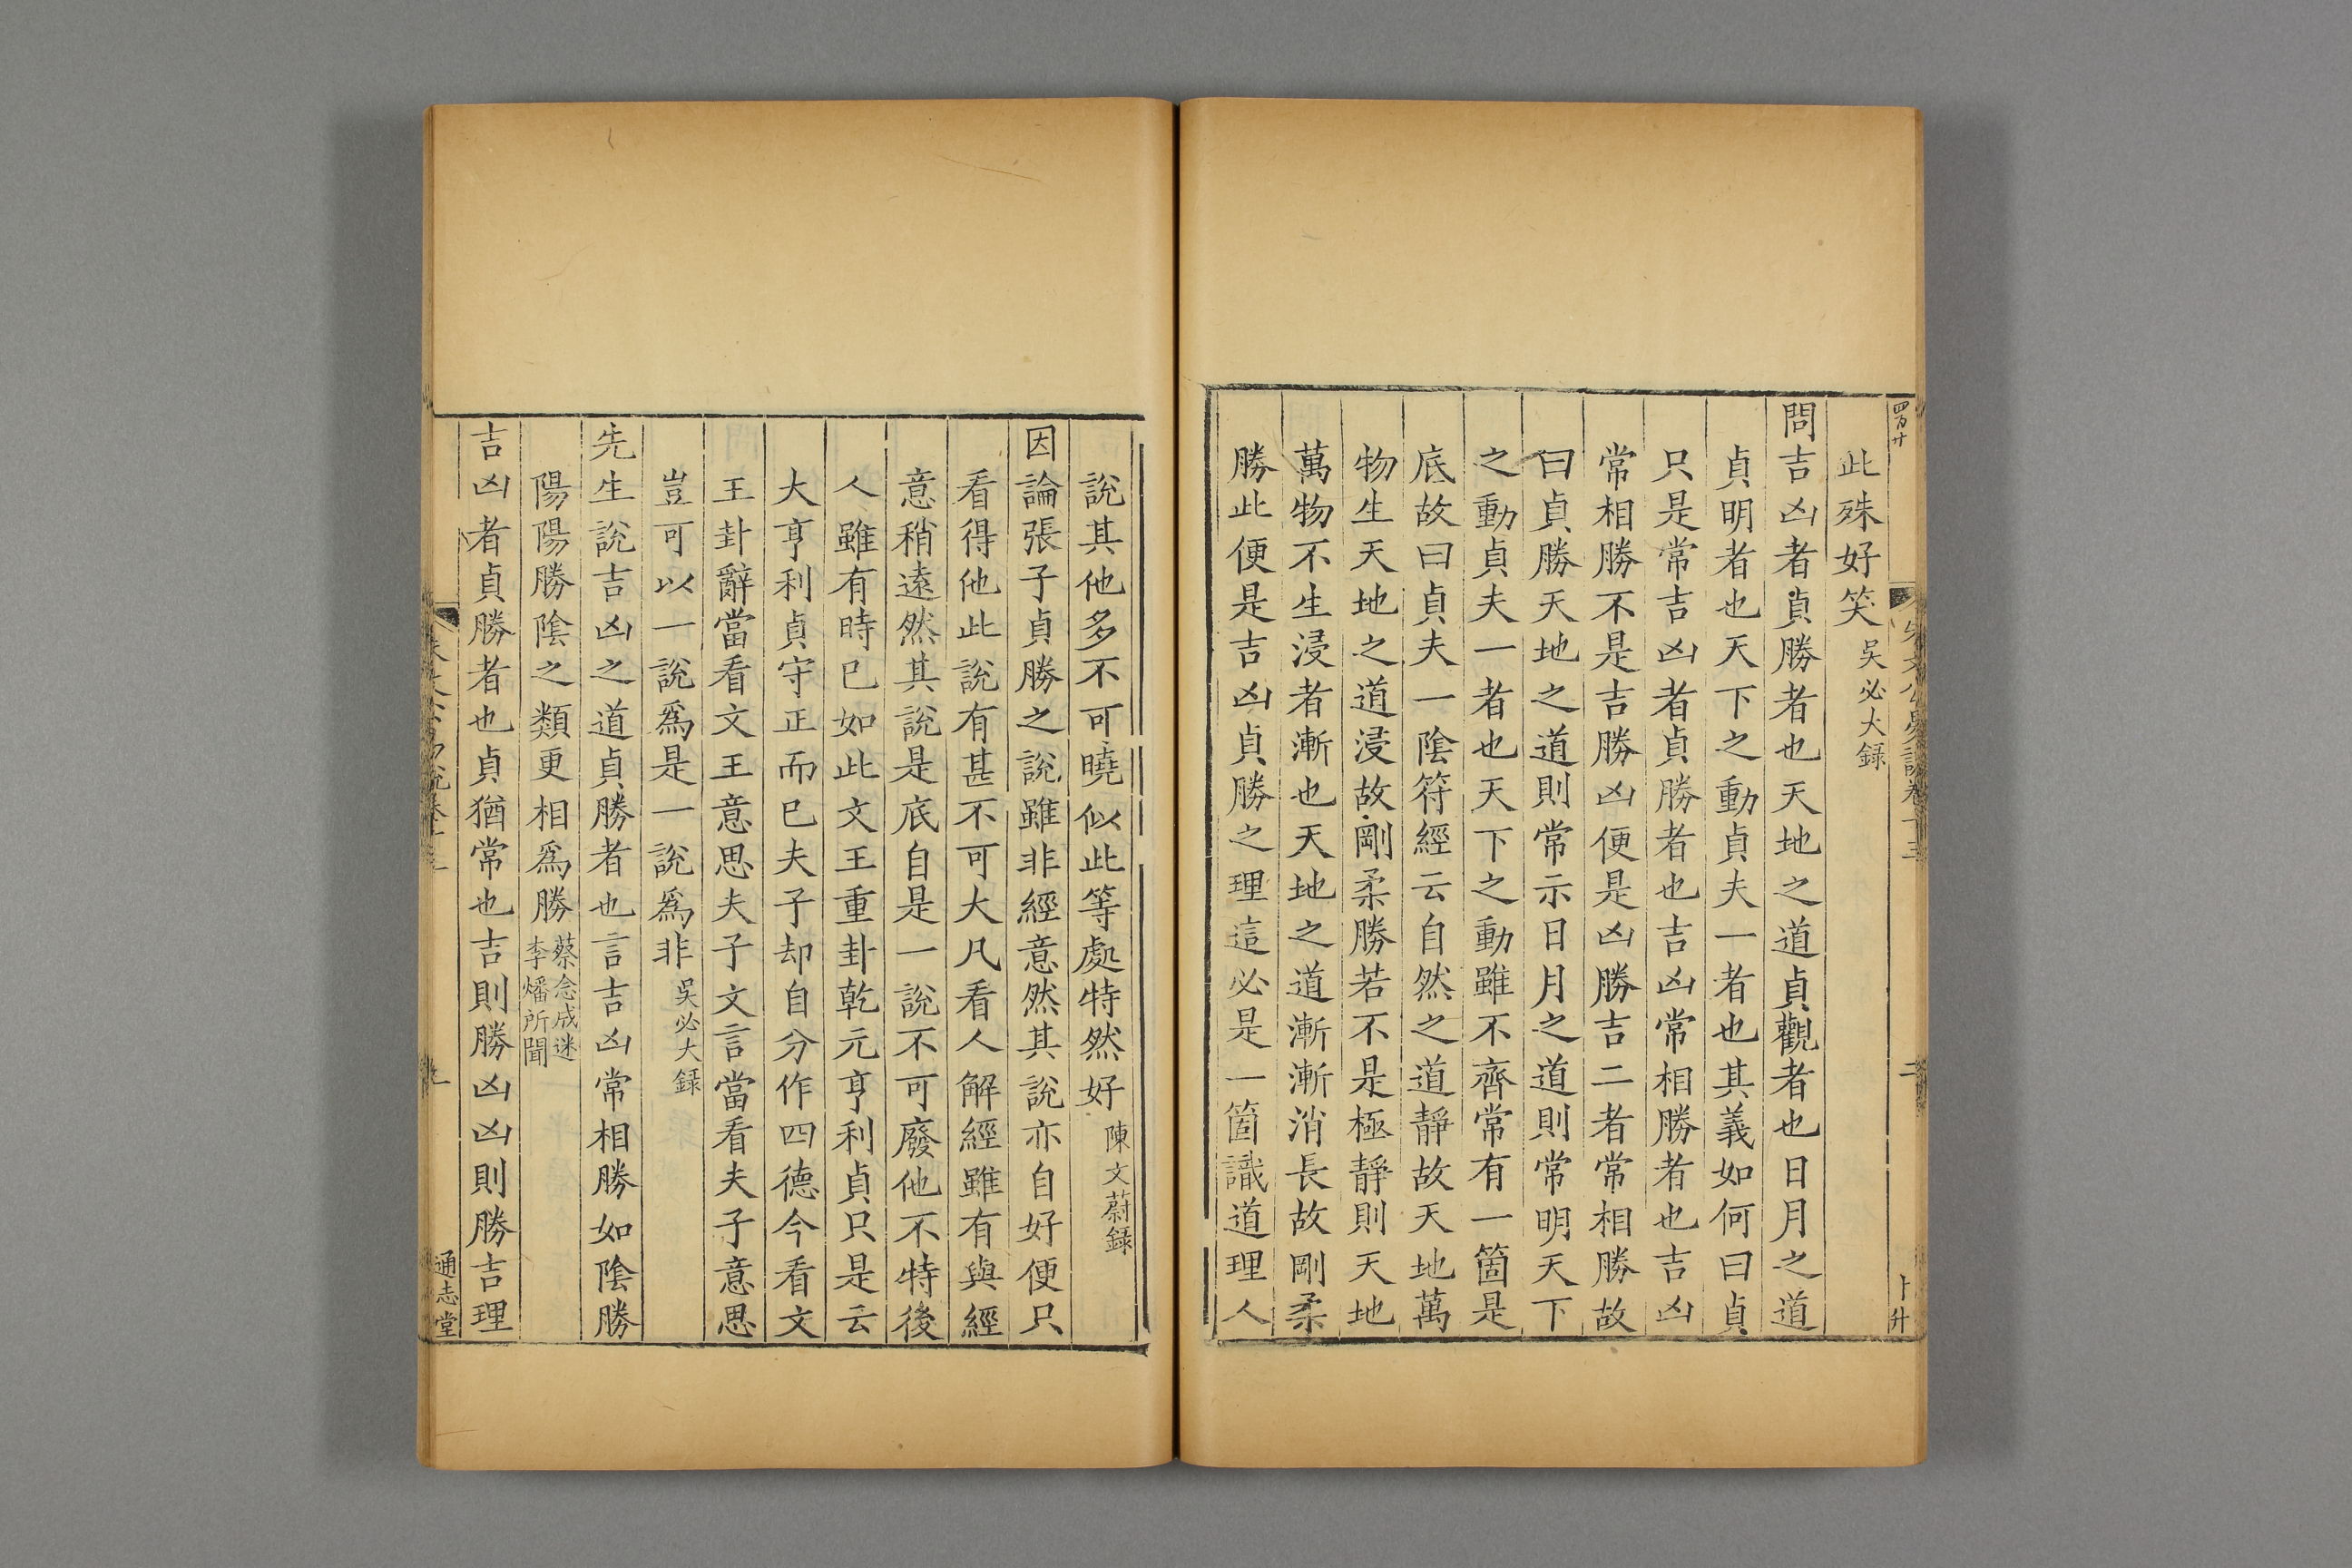 四百廿
此殊好笑吳必大録
問吉凶者貞勝者也天地之道貞觀者也日月之道
貞明者也天下之動貞夫一者也其義如何曰貞
只是常吉凶者貞勝者也吉凶常相勝者也吉凶
常相勝不是吉勝凶便是凶勝吉二者常相勝故
曰貞勝天地之道則常示日月之道則常明天下
之動貞夫一者也天下之動雖不齊常有一箇是
底故曰貞夫一陰符經云自然之道靜故天地萬
物生天地之道浸故剛柔勝若不是極靜則天地
萬物不生浸者漸也天地之道漸漸消長故剛柔
勝此便是吉凶貞勝之理這必是一箇識道理人
說其他多不可曉似此等處特然好陳文蔚録
因論張子貞勝之說雖非經意然其說亦自好便只
看得他此說有甚不可大凡看人解經雖有與經
意稍遠然其說是底自是一說不可廢他不特後
人雖有時已如此文王重卦乾元亨利貞只是云
大亨利貞守正而已夫子却自分作四德今看文
王卦辭當看文王意思夫子文言當看夫子意思
豈可以一說爲是一說爲非吳必大録
先生說吉凶之道貞勝者也言吉凶常相勝如陰勝
陽陽勝陰之類更相爲勝蔡念成述李燔所聞
吉凶者貞勝者也貞猶常也吉則勝凶凶則勝吉理
通志堂